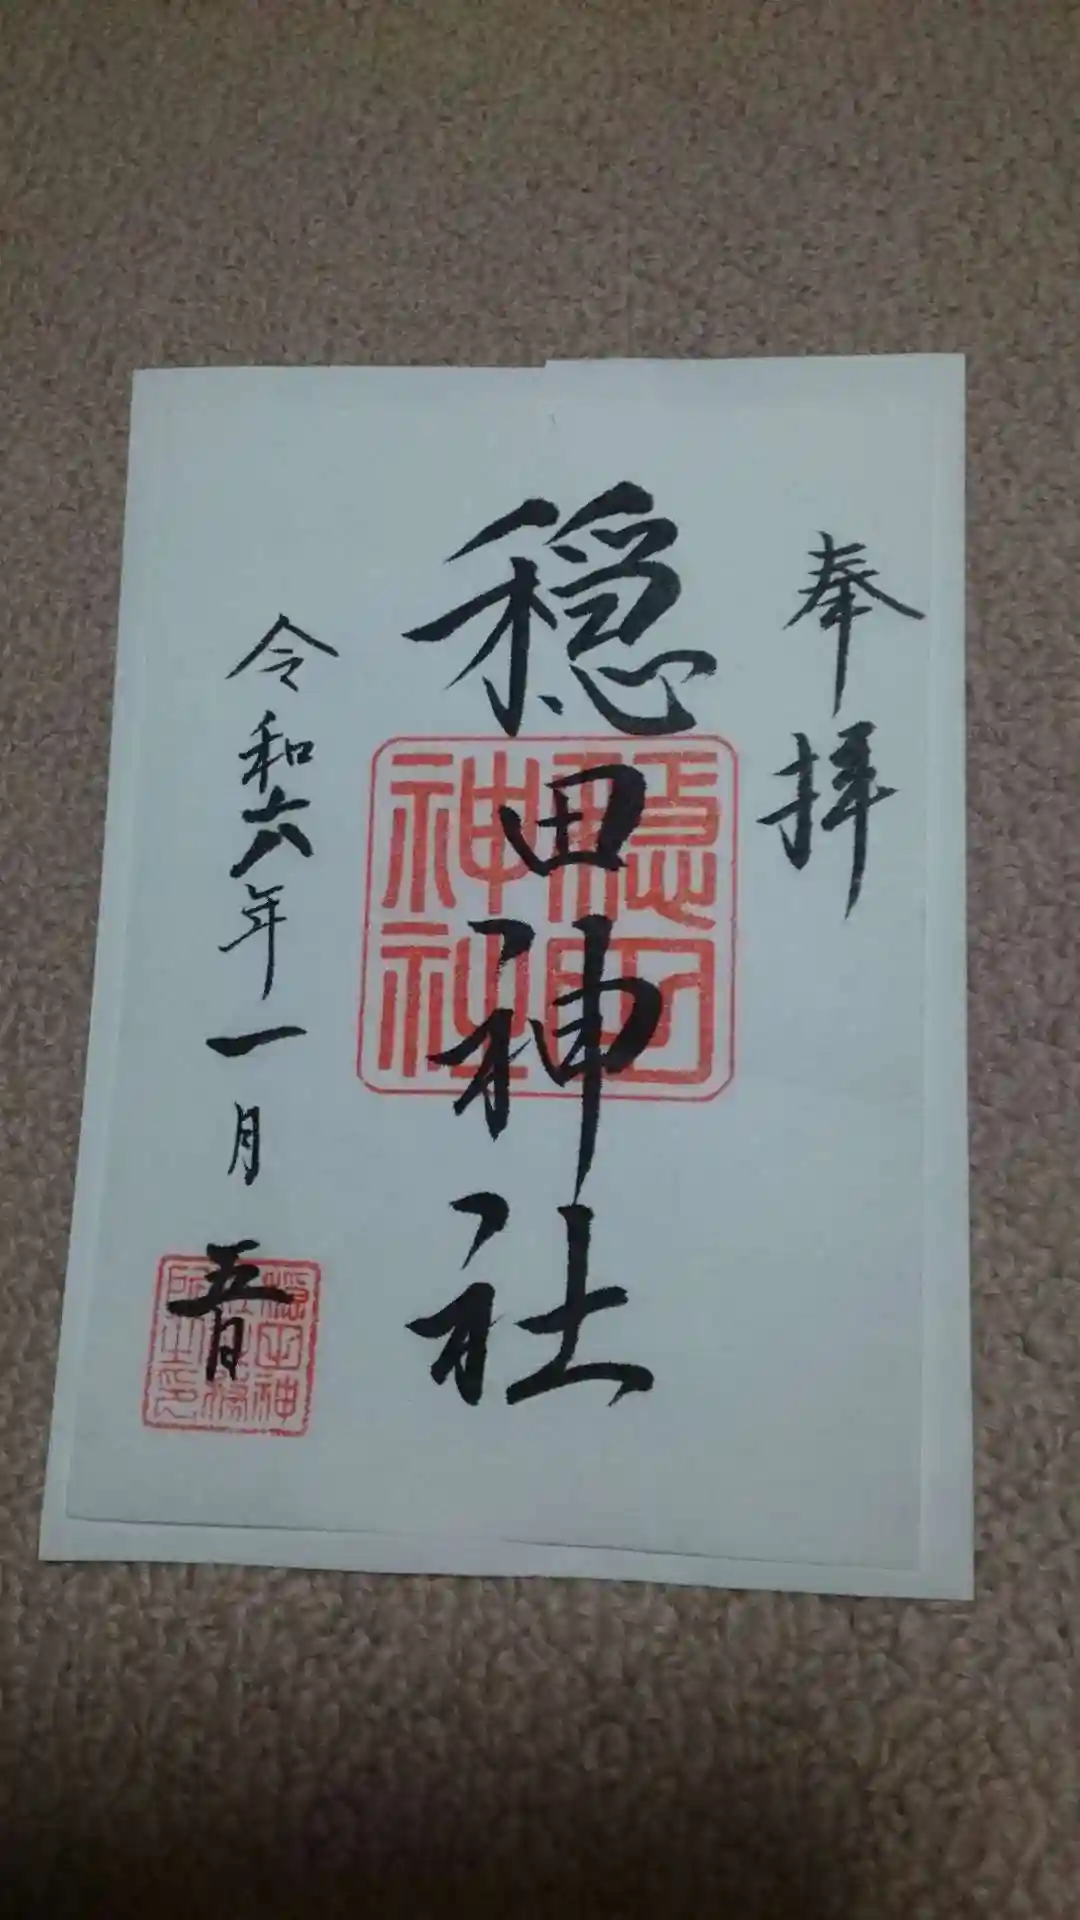 奉拝
穏田神社
穏田神社
令和六年一月五日